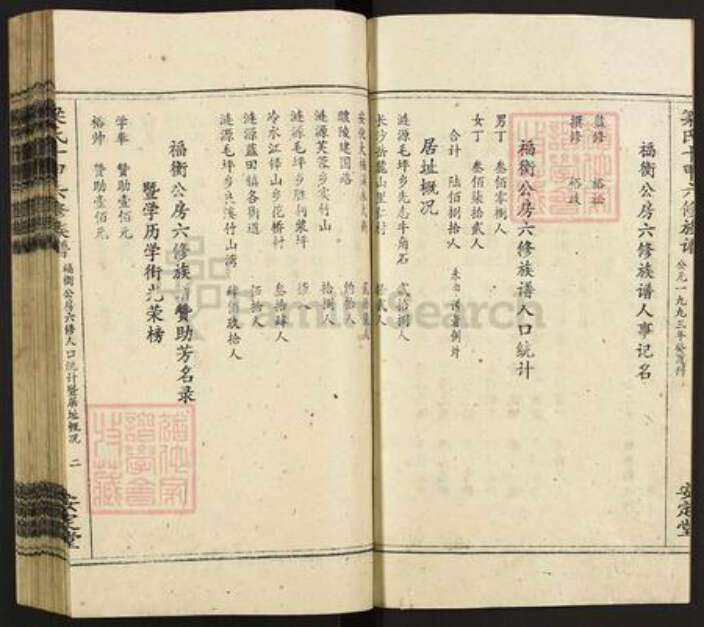 梁氏十甲六修族谱
公元一九九三年癸酉刊
安定堂
福衡公房六修族谱人事记名
监修 裕松
撰修 裕政
福衡公房六修族谱人口统计
男丁 叁佰零捌人
女丁 叁佰柒拾贰人
合计 陆佰捌拾人
居址概况
涟源毛坪乡先志牛角石 贰拾捌人
长沙岳麓山
醴陵建国路
涟源芙蓉乡实竹山 拾捌人
涟源毛坪乡
冷水江铎山乡花桥村 叁拾肆人
涟源蓝田镇各街道 伍拾人
涟源毛坪乡 竹山湾 肆佰玖拾人
福衡公房六修族谱赞助芳名录
暨学历学衔光荣榜
学奉 赞助壹佰元
裕帅 赞助壹佰元
福衡公房六修人口统计暨居址概况 二
安定堂
FamilySearch